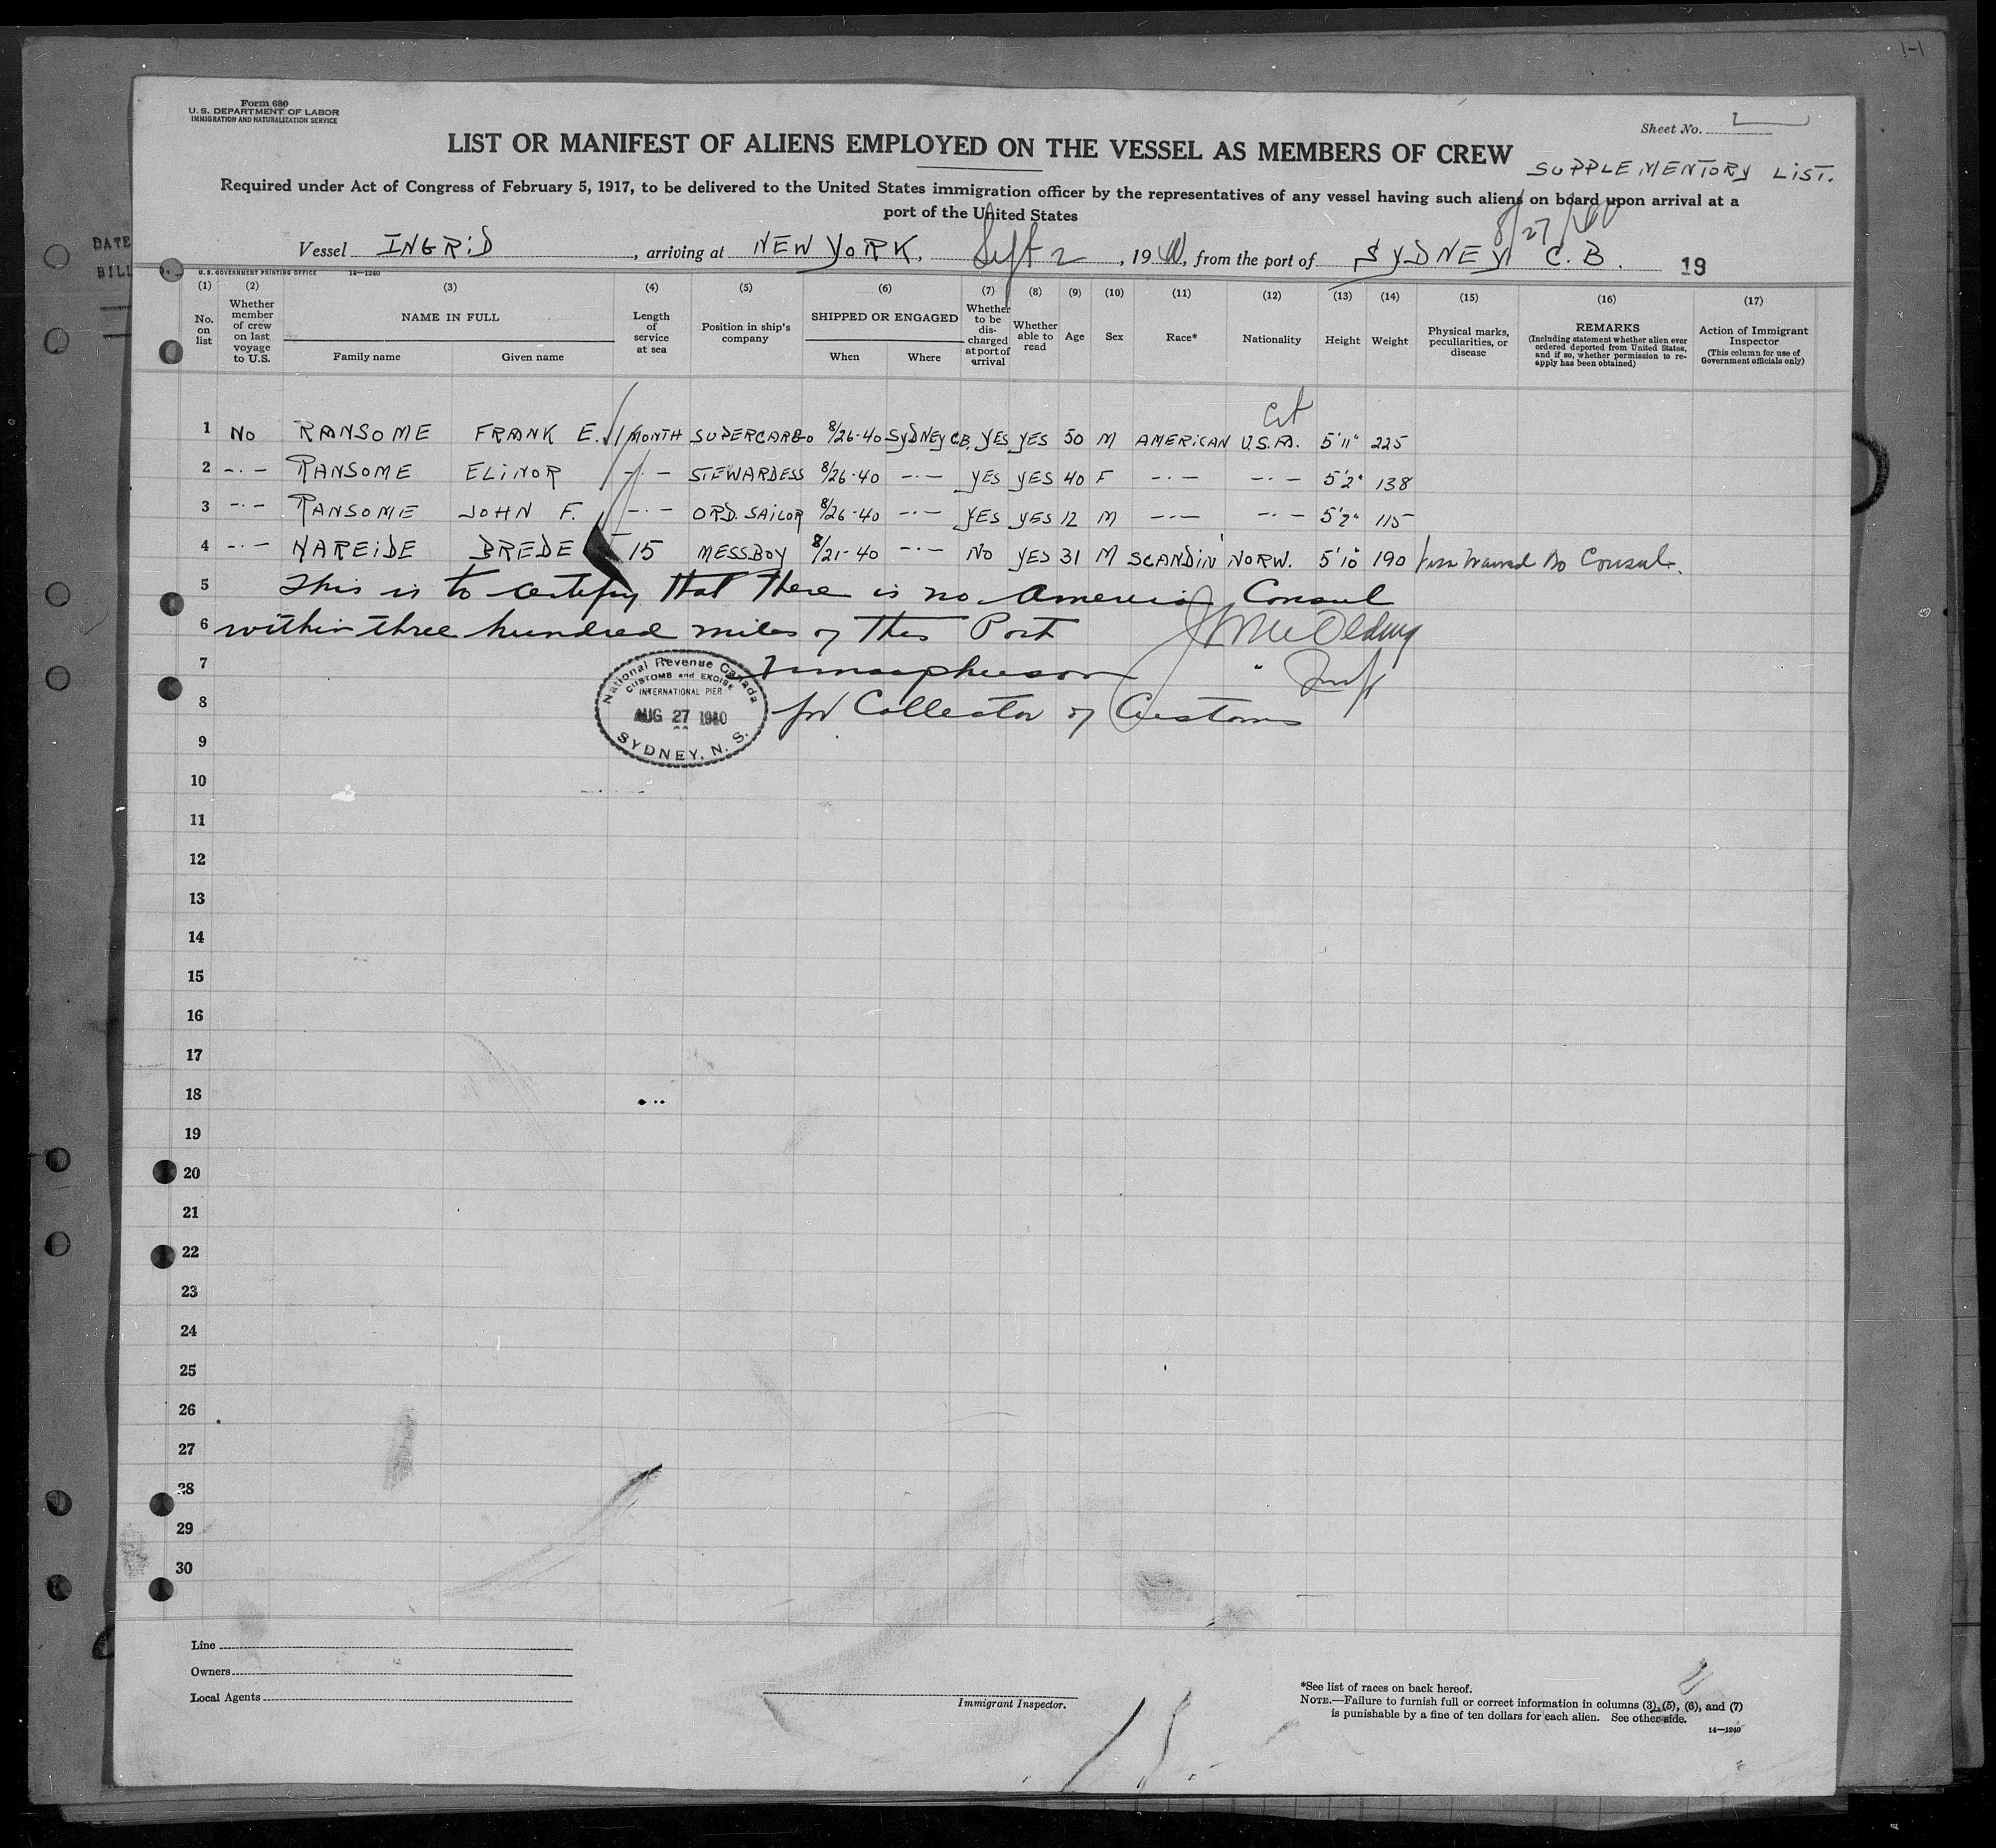 1-1
DATE
BILL
Form 680
U. S. DEPARTMENT OF LABOR
IMMIGRATION AND NATURALIZATION SERVICE
Sheet No. 2
LIST OR MANIFEST OF ALIENS EMPLOYED ON THE VESSEL AS MEMBERS OF CREW
SUPPLEMENTORY LIST.
Required under Act of Congress of February 5, 1917, to be delivered to the United States immigration officer by the representatives of any vessel having such aliens on board upon arrival at a
port of the United States
8/27/40
Vessel INGRID, arriving at NEW YORK, Sept 2, 1940, from the port of SYDNEY C.B. 19
U.S. GOVERNMENT PRINTING OFFICE 14—1240
(1) (2) (3) (4) (5) (6) (7) (8) (9) (10) (11) (12) (13) (14) (15) (16) (17)
No. on list
Whether member of crew on last voyage to U.S.
NAME IN FULL
Family name Given name
Length of service at sea
Position in ship's company
SHIPPED OR ENGAGED
When Where
Whether to be discharged at port of arrival
Whether able to read
Age
Sex
Race*
Nationality
Height
Weight
Physical marks, peculiarities, or disease
REMARKS
(Including statement whether alien ever ordered deported from United States, and if so, whether permission to reapply has been obtained)
Action of Immigrant Inspector
(This column for use of Government officials only)
Cit
1 No RANSOME FRANK E. 1 MONTH SUPERCARGO 8/26-40 SYDNEY C.B. YES YES 50 M AMERICAN U.S.A. 5'11" 225
2 -·- RANSOME ELINOR -·- STEWARDESS 8/26-40 -·- YES YES 40 F -·- -·- 5'2" 138
3 -·- RANSOME JOHN F. -·- ORD. SAILOR 8/26-40 -·- YES YES 12 M -·- -·- 5'2" 115
4 -·- HAREIDE BREDE 15 MESSBOY 8/21-40 -·- NO YES 31 M SCANDIN NORW. 5'10" 190 Visa waived No Consul.
5 This is to certify that there is no American Consul
6 within three hundred miles of this Port
7
8 for Collector of Customs
National Revenue Canada
CUSTOMS and EXCISE
INTERNATIONAL PIER
AUG 27 1940
SYDNEY, N. S.
9
10
11
12
13
14
15
16
17
18
19
20
21
22
23
24
25
26
27
28
29
30
Line
Owners
Local Agents
Immigrant Inspector.
*See list of races on back hereof.
NOTE.—Failure to furnish full or correct information in columns (3), (5), (6), and (7)
is punishable by a fine of ten dollars for each alien. See other side.
14—1240